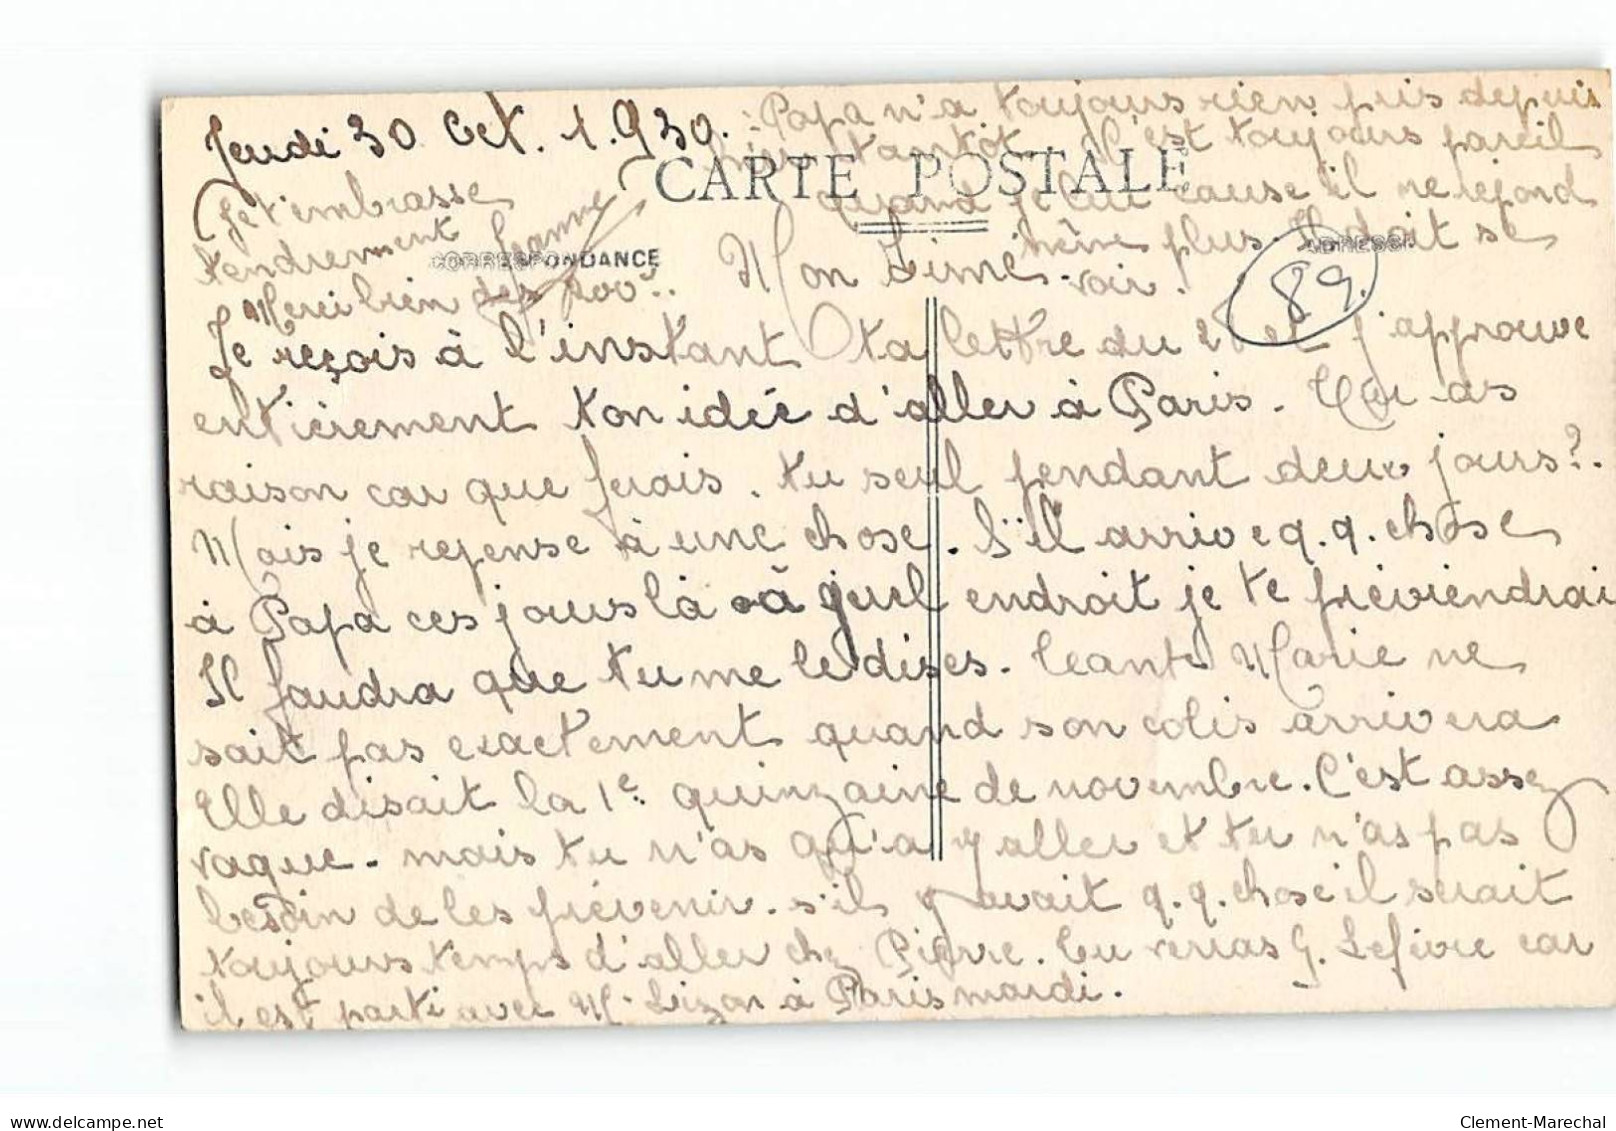 Jeudi 30 Oct. 1.930.
Papa n'a toujours rien pris depuis
hier tantôt. C'est toujours pareil
quand je lui cause il ne répond
même plus. Il doit se
voir.
CARTE POSTALE
CORRESPONDANCE
ADRESSE
89.
Je t'embrasse
tendrement Jeanne
Merci bien des 200
Mon Aimé.
Je reçois à l'instant ta lettre du 2 et j'approuve
entièrement ton idée d'aller à Paris. Tu as
raison car que ferais. tu seul pendant deux jours?.
Mais je repense à une chose. S'il arrive q.q.chose
à Papa ces jours là à quel endroit je te préviendrai
Il faudra que tu me le dises. Tante Marie ne
sait pas exactement quand son colis arrivera
Elle disait la 1e quinzaine de novembre. C'est assez
vague. mais tu n'as qu'a y aller et tu n'as pas
besoin de les prévenir. s'il y avait q.q.chose il serait
toujours temps d'aller chez Pierre. Tu verras G. Lefèvre car
il est parti avec M. Lizon à Paris mardi.
Clement-Marechal